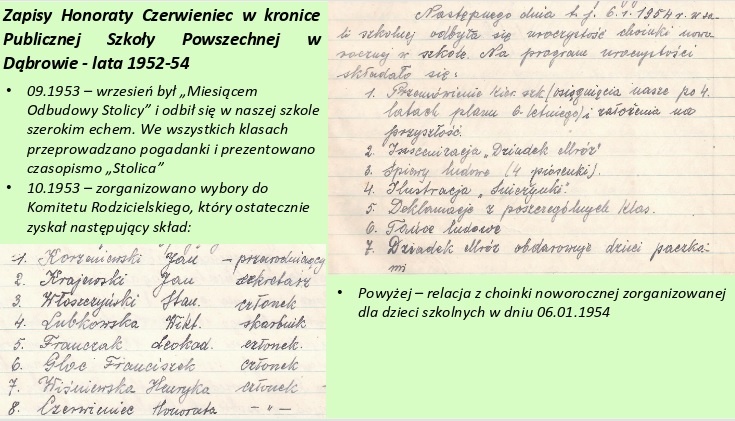 Zapisy Honoraty Czerwieniec w kronice
Publicznej Szkoły Powszechnej w
Dąbrowie - lata 1952-54
• 09.1953 – wrzesień był „Miesiącem
Odbudowy Stolicy” i odbił się w naszej szkole
szerokim echem. We wszystkich klasach
przeprowadzano pogadanki i prezentowano
czasopismo „Stolica”
• 10.1953 – zorganizowano wybory do
Komitetu Rodzicielskiego, który ostatecznie
zyskał następujący skład:
1. Korzeniewski Jan – przewodniczący
2. Krajewski Jan sekretarz
3. Włoszczyński Stan. członek
4. Lubkowska Wikt. skarbnik
5. Franczak Leokad. członek.
6. Gloc Franciszek członek
7. Wiśniewska Henryka członek -
8. Czerwieniec Honorata – „ –
Następnego dnia t. j. 6.I.1954 r. w sa-
li szkolnej odbyła się uroczystość choinki nowo
rocznej w szkole. Na program uroczystości
składało się:
1. Przemówienie kier. szk. (osiągnięcia nasze po 4.
latach planu 6-letniego) i założenia na
przyszłość.
2. Inscenizacja „Dziadek Mróz”
3. Śpiewy ludowe (4 piosenki).
4. Ilustracja „Śnieżynki”
5. Deklamacje z poszczególnych klas.
6. Tańce ludowe
7. Dziadek Mróz obdarowuje dzieci paczka-
mi
• Powyżej – relacja z choinki noworocznej zorganizowanej
dla dzieci szkolnych w dniu 06.01.1954